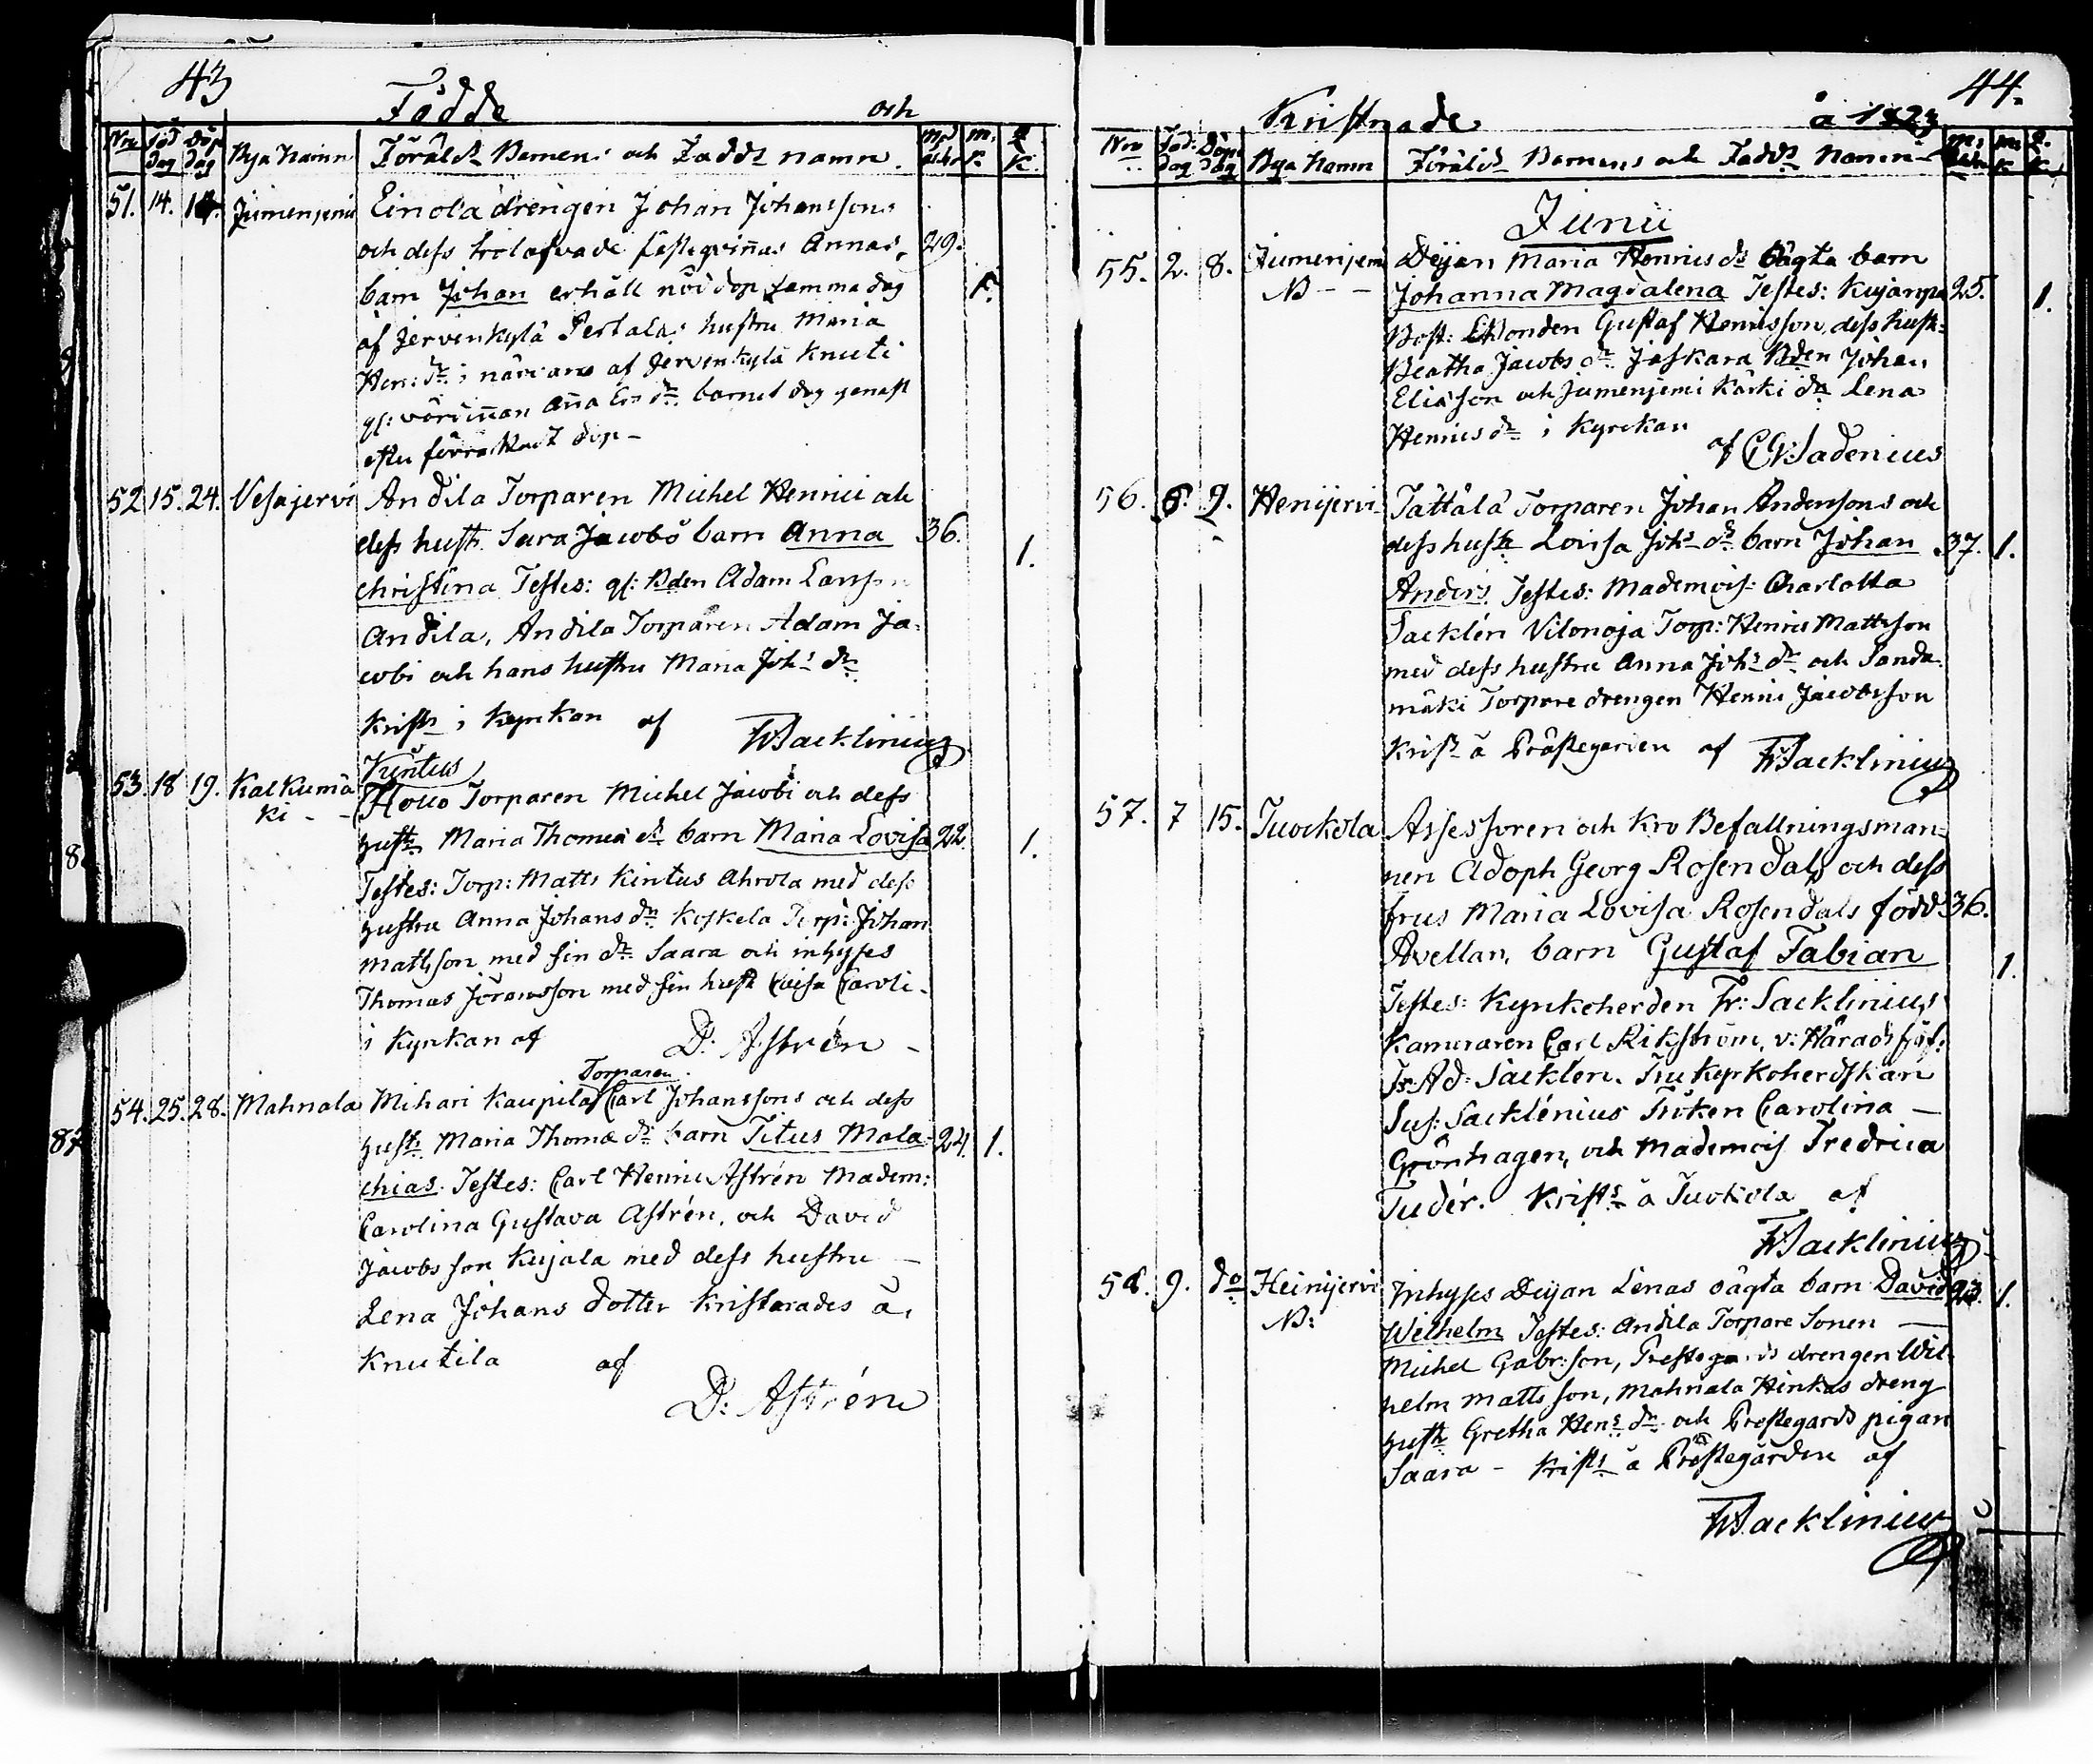 43
Födde och
Nro Föd dag Döp dag Bya Namn Föräld:s Barnens och Fadd:s namn. M:s ålder m. k. Q. K.
51. 14. 14. Jumenjemi Einola drengen Johan Johanssons
och dess trolofvade fästeqvinnas Annas, 29.
barn Johan erhöll nöd dop samma dag 1.
af Jervenkylä Pertala: hustru Maria
Hen: dr i närvaro af Jervenkylä Knuti
gl: värdinnan Anna Er: dr barnet dog genast
efter förrättadt dop –
52 15. 24. Vesajervi Andila Torparen Michel Henrici och
dess hustr Sara Jacobs barn Anna 36. 1.
Christina Testes: gl: Bden Adam Larss
Andila, Andila Torparen Adam Ja-
cobi och hans hustru Maria Joh:s dr
Krist: i Kyrkan af FSacklinius
Kintus
53. 18 19. Kalkumä Hollo Torparen Michel Jacobi och dess
ki - - hustr Maria Thomæ dr barn Maria Lovisa 22. 1.
Testes: Torp: Matts Kintus Ahrola med dess
hustru Anna Johans dr Koskela Torp: Johan
Mattsson med sin dr Saara och inhyses
Thomas Göransson med sin hustr Caisa Caroli-
i Kyrkan af D: Astrén –
Torparen
54. 25. 28. Mahnala Mihari Kaupila Carl Johanssons och dess
hustr Maria Thomæ dr barn Titus Mala- 24. 1.
chias. Testes: Carl Henric Astrén Madem:
Carolina Gustava Astrén, och David
Jacobsson Kujala med dess hustru –
Lena Johans dotter kristnades å
Knutila af
D: Astrén
44.
Kristnade å 1823
Nro Föd: dag Döp: dag Bya Namn Föräld:s Barnens och Fadd:s Namn m:s ålder m. k. Q. K.
Junii
55. 2. 8. Jumenjemi Deijan Maria Henrics dr oägta barn
NB – – Johanna Magdalena Testes: Kujanpä 25. 1.
Bost: Bonden Gustaf Henricsson, dess hustr:
Beatha Jacobs dr Jaskara Bden Johan
Eliasson och Jumenjemi Kärki dr Lena
Henrics dr i Kyrckan
af CGSadenius
56. 6. 9. Henijervi Tättälä Torparen Johan Anderssons och
dess hustr Lovisa Joh:s dr barn Johan 37. 1.
Anders. Testes: Mademois: Charlotta
Sacklén Vilonoja Torp: Henric Mattsson
med dess hustru Anna Joh:s dr och Sanda-
mäki Torpare drengen Henric Jacobsson
Krist: å Prästegården af FSacklinius
57. 7 15. Tuockola Assessoren och Kro Befallningsman-
nen Adoph Georg Rosendals och dess
frus Maria Lovisa Rosendals född 36.
Avellan, barn Gustaf Fabian 1.
Testes: Kyrkoherden Fr: Sacklinius
Kameraren Carl Rikström, v: Häradshöf:
Fr: Ad: Sacklén. Fru Kyrkoherdskan
Sus: Sacklénius Fröken Carolina –
Grönhagen, och Mademois Fredrica
Tudér. Krist:s å Tuokola af
FSacklinius
58. 9. do Heinijervi Inhyses Deijan Lenas oägta barn David 23. 1.
NB: Wilhelm Testes: Andila Torpare Sonen –
Michel Gabr:son, Prestegårds drengen Wil-
helm Mattsson, Mahnala Hinkas dreng
hustr Gretha Hen:s dr och Prestegårds pigan
Saara – Krist:s å Prästegården af
FSacklinius